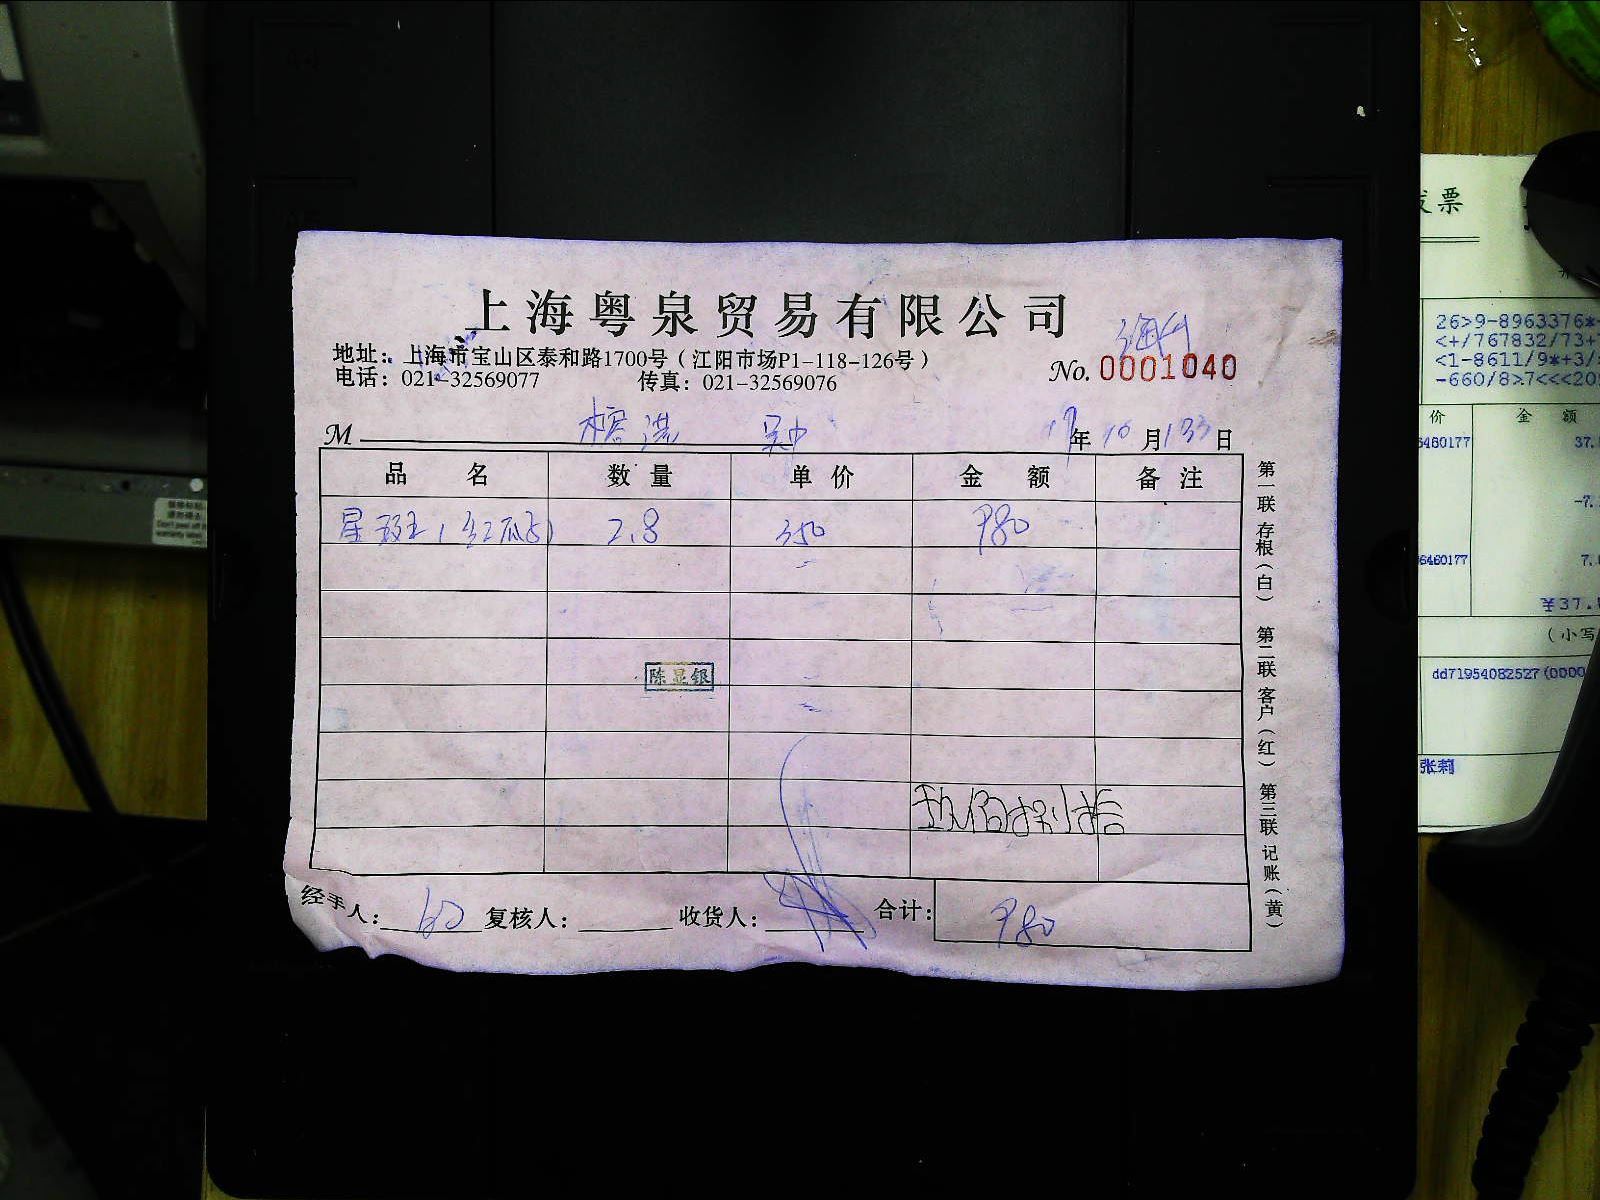 上海粤泉贸易有限公司
地址：上海市宝山区泰和路1700号（江阳市场P1-118-126号）
电话：021-32569077 传真：021-32569076
No. 0001040
M 年 10 月 日
品名 数量 单价 金额 备注
星斑 2.8 350 980
陈显银
玖佰捌拾
经手人： 复核人： 收货人： 合计： 980
第一联 存根（白） 第二联 客户（红） 第三联 记账（黄）
发票
26>9-8963376*
<+/767832/73+
<1-8611/9*+3/
-660/8>7<<<20
价 金 额
6460177 37.
-7.
6460177 7.
¥37.
（小写
dd71954082527(0000
张莉